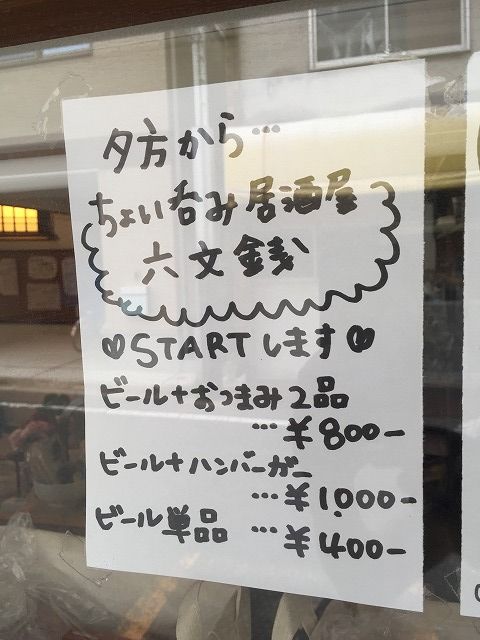 夕方から…
ちょい呑み居酒屋
六文銭
♡STARTします♡
ビール+おつまみ2品
…¥800-
ビール+ハンバーガー
…¥1.000-
ビール単品 …¥400-